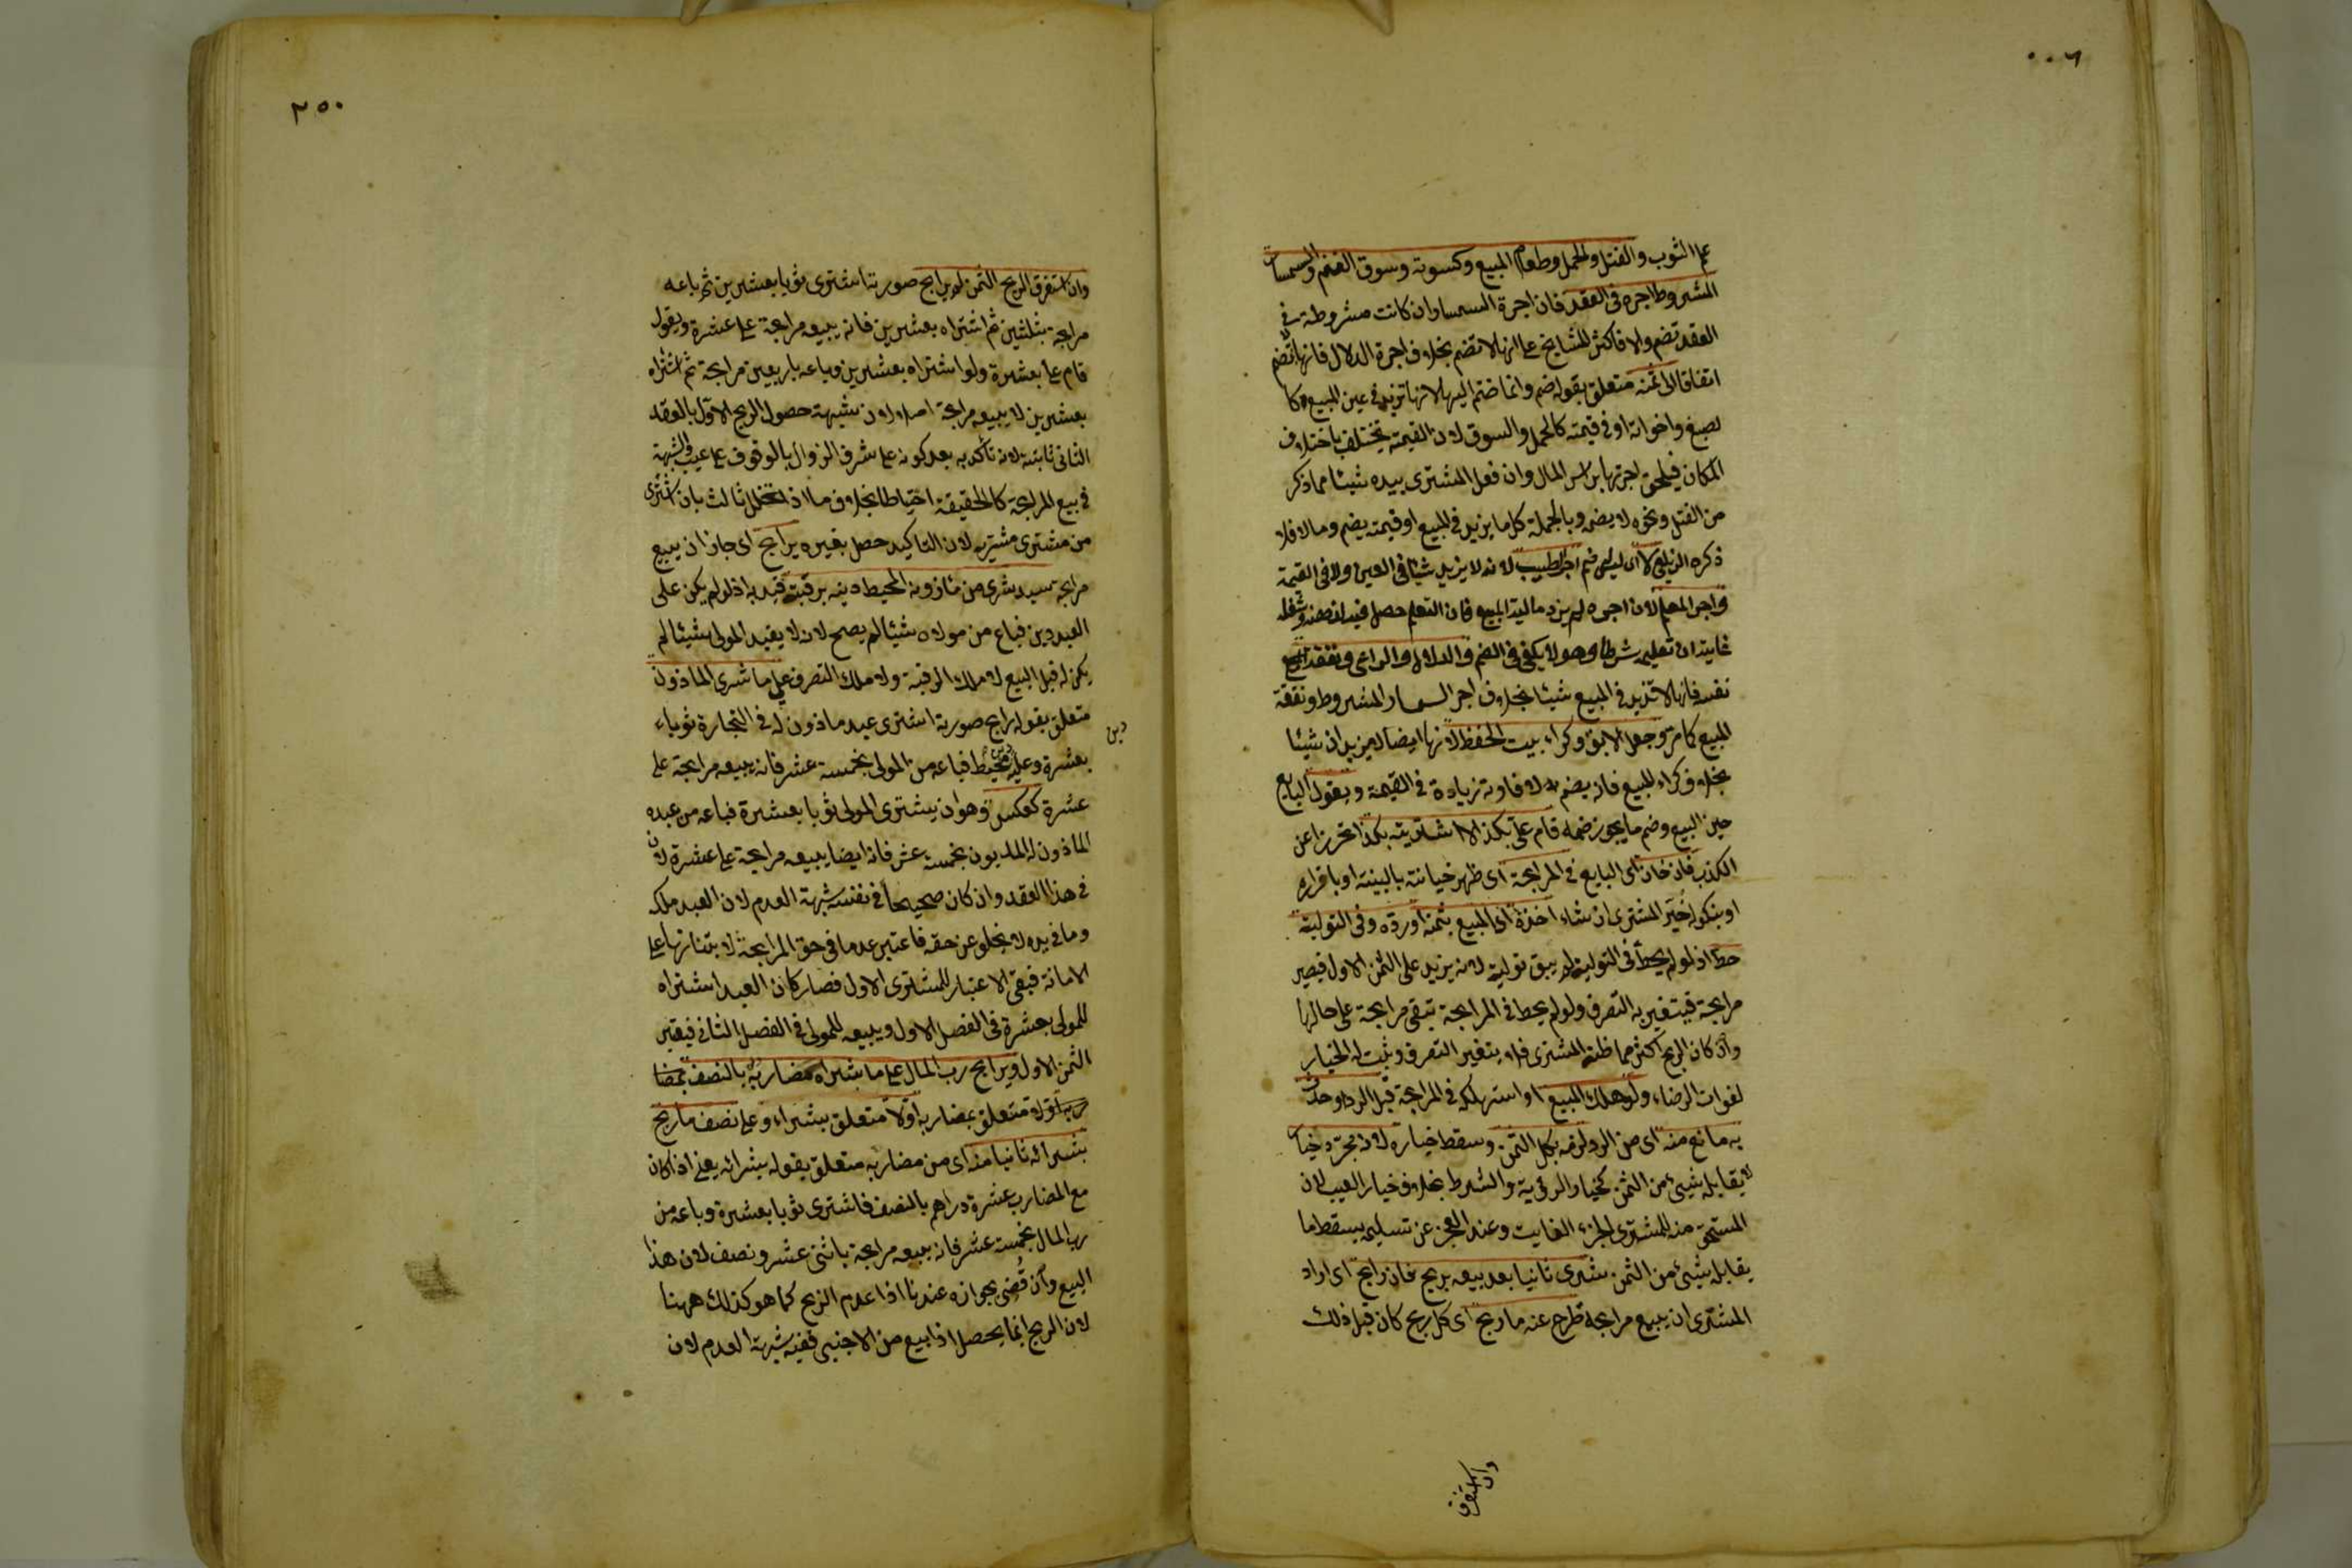 علم الثوب والفتل والحمل وطعام المبيع وكسوته وسوق الغنم والسمسار
المشروط اجره فى العقد فان اجرة السمسار ان كانت مشروطة فى
العقد تضم والا فاكثر المشايخ على انها لا تضم بخلاف اجرة الدلال فانها لا تضم
اتفاقا الى ثمنه متعلق بقوله ضم وانما ضم اليه لانها تزيد فى عين المبيع كا
لصبغ واخواته او فى قيمته كالحمل والسوق لان القيمة تختلف باختلاف
المكان فيلحق اجرتها براس المال وان فعل المشترى بيده شيئا مما ذكر
من الفتل ونحوه لا يضمه وبالجملة كل ما يزيد فى المبيع او قيمته يضم وما لا فلا
ذكره الزيلعى لا اى ليس ضم اجر الطبيب لانه لا يزيد شيئا فى العين ولا فى القيمة
واجر المعلم لان اجره لم يزد مالية المبيع فان التعلم حصل فيه لذهنه وشغله
غايته ان تعليمه شرط وهو لا يكفى فى الضم والدلال والراعى ونفقة
نفسه فانها لا تزيد فى المبيع شيئا بخلاف اجر السمسار المشروط ونفقة
المبيع كما مر وجعل الابق وكراء بيت الحفظ لانها ايضا لا يزيدان شيئا
بخلاف كراء المبيع فانه يضم لافادته زيادة فى القيمة ويقول البايع
حين البيع وضم ما يجوز ضمه قام على بكذا لا اشتريته بكذا تحرزا عن
الكذب فان خان اى البايع فى المرابحة اى ظهر خيانته بالبينة او باقراره
او بنكوله خير المشترى ان شاء اخذه اى المبيع بثمنه او رده وفى التولية
حط اذ لو لم يحط فى التولية لم يبق تولية لانه يزيد على الثمن الاول فيصير
مرابحة فيتغير به التصرف ولو لم يحط فى المرابحة تبقى مرابحة على حالها
وان كان الربح اكثر مما ظنه المشترى فلا يتغير التصرف ويثبت له الخيار
لفوات الرضاء ولو هلك المبيع او استهلكه فى المرابحة قبل الرد او حدث
به مانع منه اى من الرد لزمه بكل الثمن وسقط خياره لانه مجرد خيار
لا يقابله شيئ من الثمن كخيار الرؤية والشرط بخلاف خيار العيب لان
المستحق منه للمشترى الجزء الفايت وعند العجز عن تسليمه يسقط ما
يقابله شيئ من الثمن شرى ثانيا بعد بيعه بربح فان رابح اى اراد
المشترى ان يبيع مرابحة طرح عنه ما ربح اى كل ربح كان قبل ذلك
وان استغرق
٢٥٠
وان استغرق الربح الثمن لم يرابح صورته اشترى ثوبا بعشرين ثم باعه
مرابحة بثلثين ثم اشتراه بعشرين فانه يبيعه مرابحة على عشرة ويقول
قام على بعشرة ولو اشتراه بعشرين وباعه باربعين مرابحة ثم اشتراه
بعشرين لا يبيعه مرابحة اصلا لان شبهة حصول الربح الاول بالعقد
الثانى ثابتة لانه تأكد به بعد كونه على شرف الزوال بالوقوف على عيب والشبهة
فى بيع المرابحة كالحقيقة احتياطا بخلاف ما اذا تخلل ثالث بان اشترى
من مشترى مشتريه لان التاكيد حصل بغيره يرابح اى جاز ان يبيع
مرابحة سيد شرى من مأذونه المحيط دينه برقبته قيد به اذ لو لم يكن على
العبد دين فباع من مولاه شيئا لم يصح لانه لا يفيد المولى شيئا لم
يكن له قبل البيع لا ملك الرقبة ولا ملك التصرف على ما شرى الماذون
متعلق بقوله رابح صورته اشترى عبد ماذون له فى التجارة ثوبا
بعشرة وعليه دين محيط فباعه من المولى بخمسة عشر فانه يبيعه مرابحة على
دين
عشرة كعكسه وهو ان يشترى المولى ثوبا بعشرة فباعه من عبده
الماذون له المديون بخمسة عشر فانه ايضا يبيعه مرابحة على عشرة لان
فى هذا العقد وان كان صحيحا فى نفسه شبهة العدم لان العبد ملكه
وما فى يده لا يخلو عن حقه فاعتبر عدما فى حق المرابحة لابتنائها على
الامانة فبقى الاعتبار للمشترى الاول فصار كان العبد اشتراه
للمولى بعشرة فى الفصل الاول ويبيعه للمولى فى الفصل الثانى فيعتبر
الثمن الاول ويرابح رب المال على ما شراه مضاربه بالنصف
اولا متعلق بشراء وعلى نصف ما ربح
بشرائه ثانيا منه اى من مضاربه متعلق بقوله بشرائه يعنى اذا كان
مع المضارب عشرة دراهم بالنصف فاشترى ثوبا بعشرة وباعه من
رب المال بخمسة عشر فانه يبيعه مرابحة باثنى عشر ونصف لان هذا
البيع وان قضى بجوازه عندنا اذا عدم الربح كما هو كذلك ههنا
لان الربح انما يحصل اذا بيع من الاجنبى ففيه شبهة العدم لان